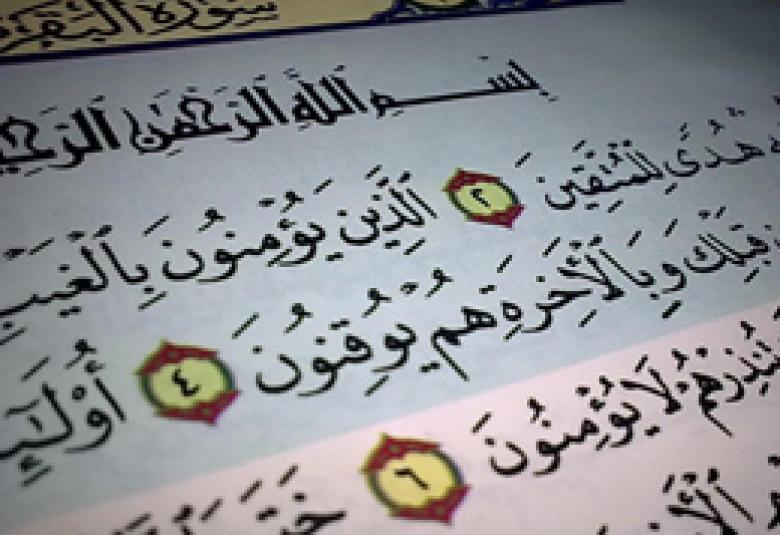 سورة البقرة
بِسْمِ اللَّهِ الرَّحْمَٰنِ الرَّحِي
هُدًى لِّلْمُتَّقِينَ ٢ الَّذِينَ يُؤْمِنُونَ بِالْغَيْبِ
قَبْلِكَ وَبِالْآخِرَةِ هُمْ يُوقِنُونَ ٤ أُولَٰئِ
تُنذِرْهُمْ لَا يُؤْمِنُونَ ٦ خَتَمَ